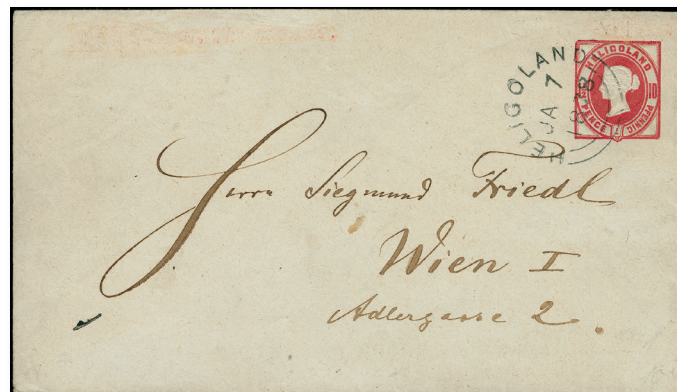 HELIGOLAND
JA 7
1878
HELIGOLAND
10
PFENNIG
PENCE
Herrn Siegmund Friedl
Wien I
Adlergasse 2.